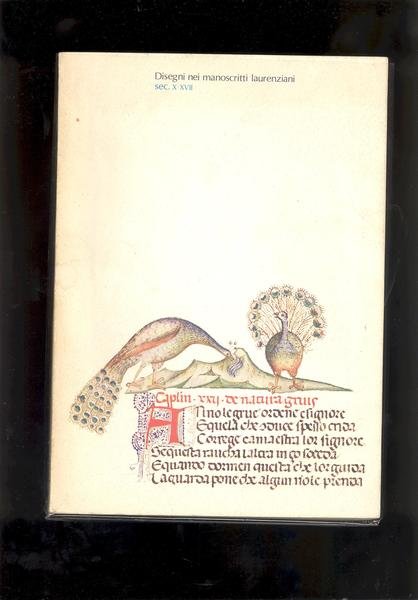 Disegni nei manoscritti laurenziani
sec. X-XVII
Caplm · xxij · de natura gruis
Ano le gru ordene e signore
Et quela che conuce spesso crida
Correge e amaestra lor signore
Se questa raucha laltra in so seceda
E quando dormen questa che lor guida
La guarda pone che algun nole prenda